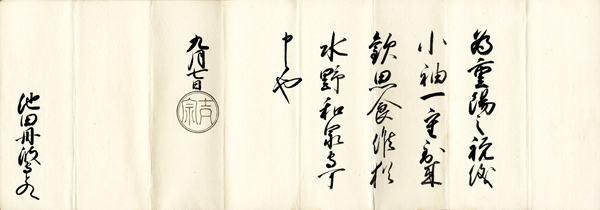 為重陽之祝儀
小袖一重到来
歓思食候猶
水野和泉守可
申也
九月七日
池田丹波守